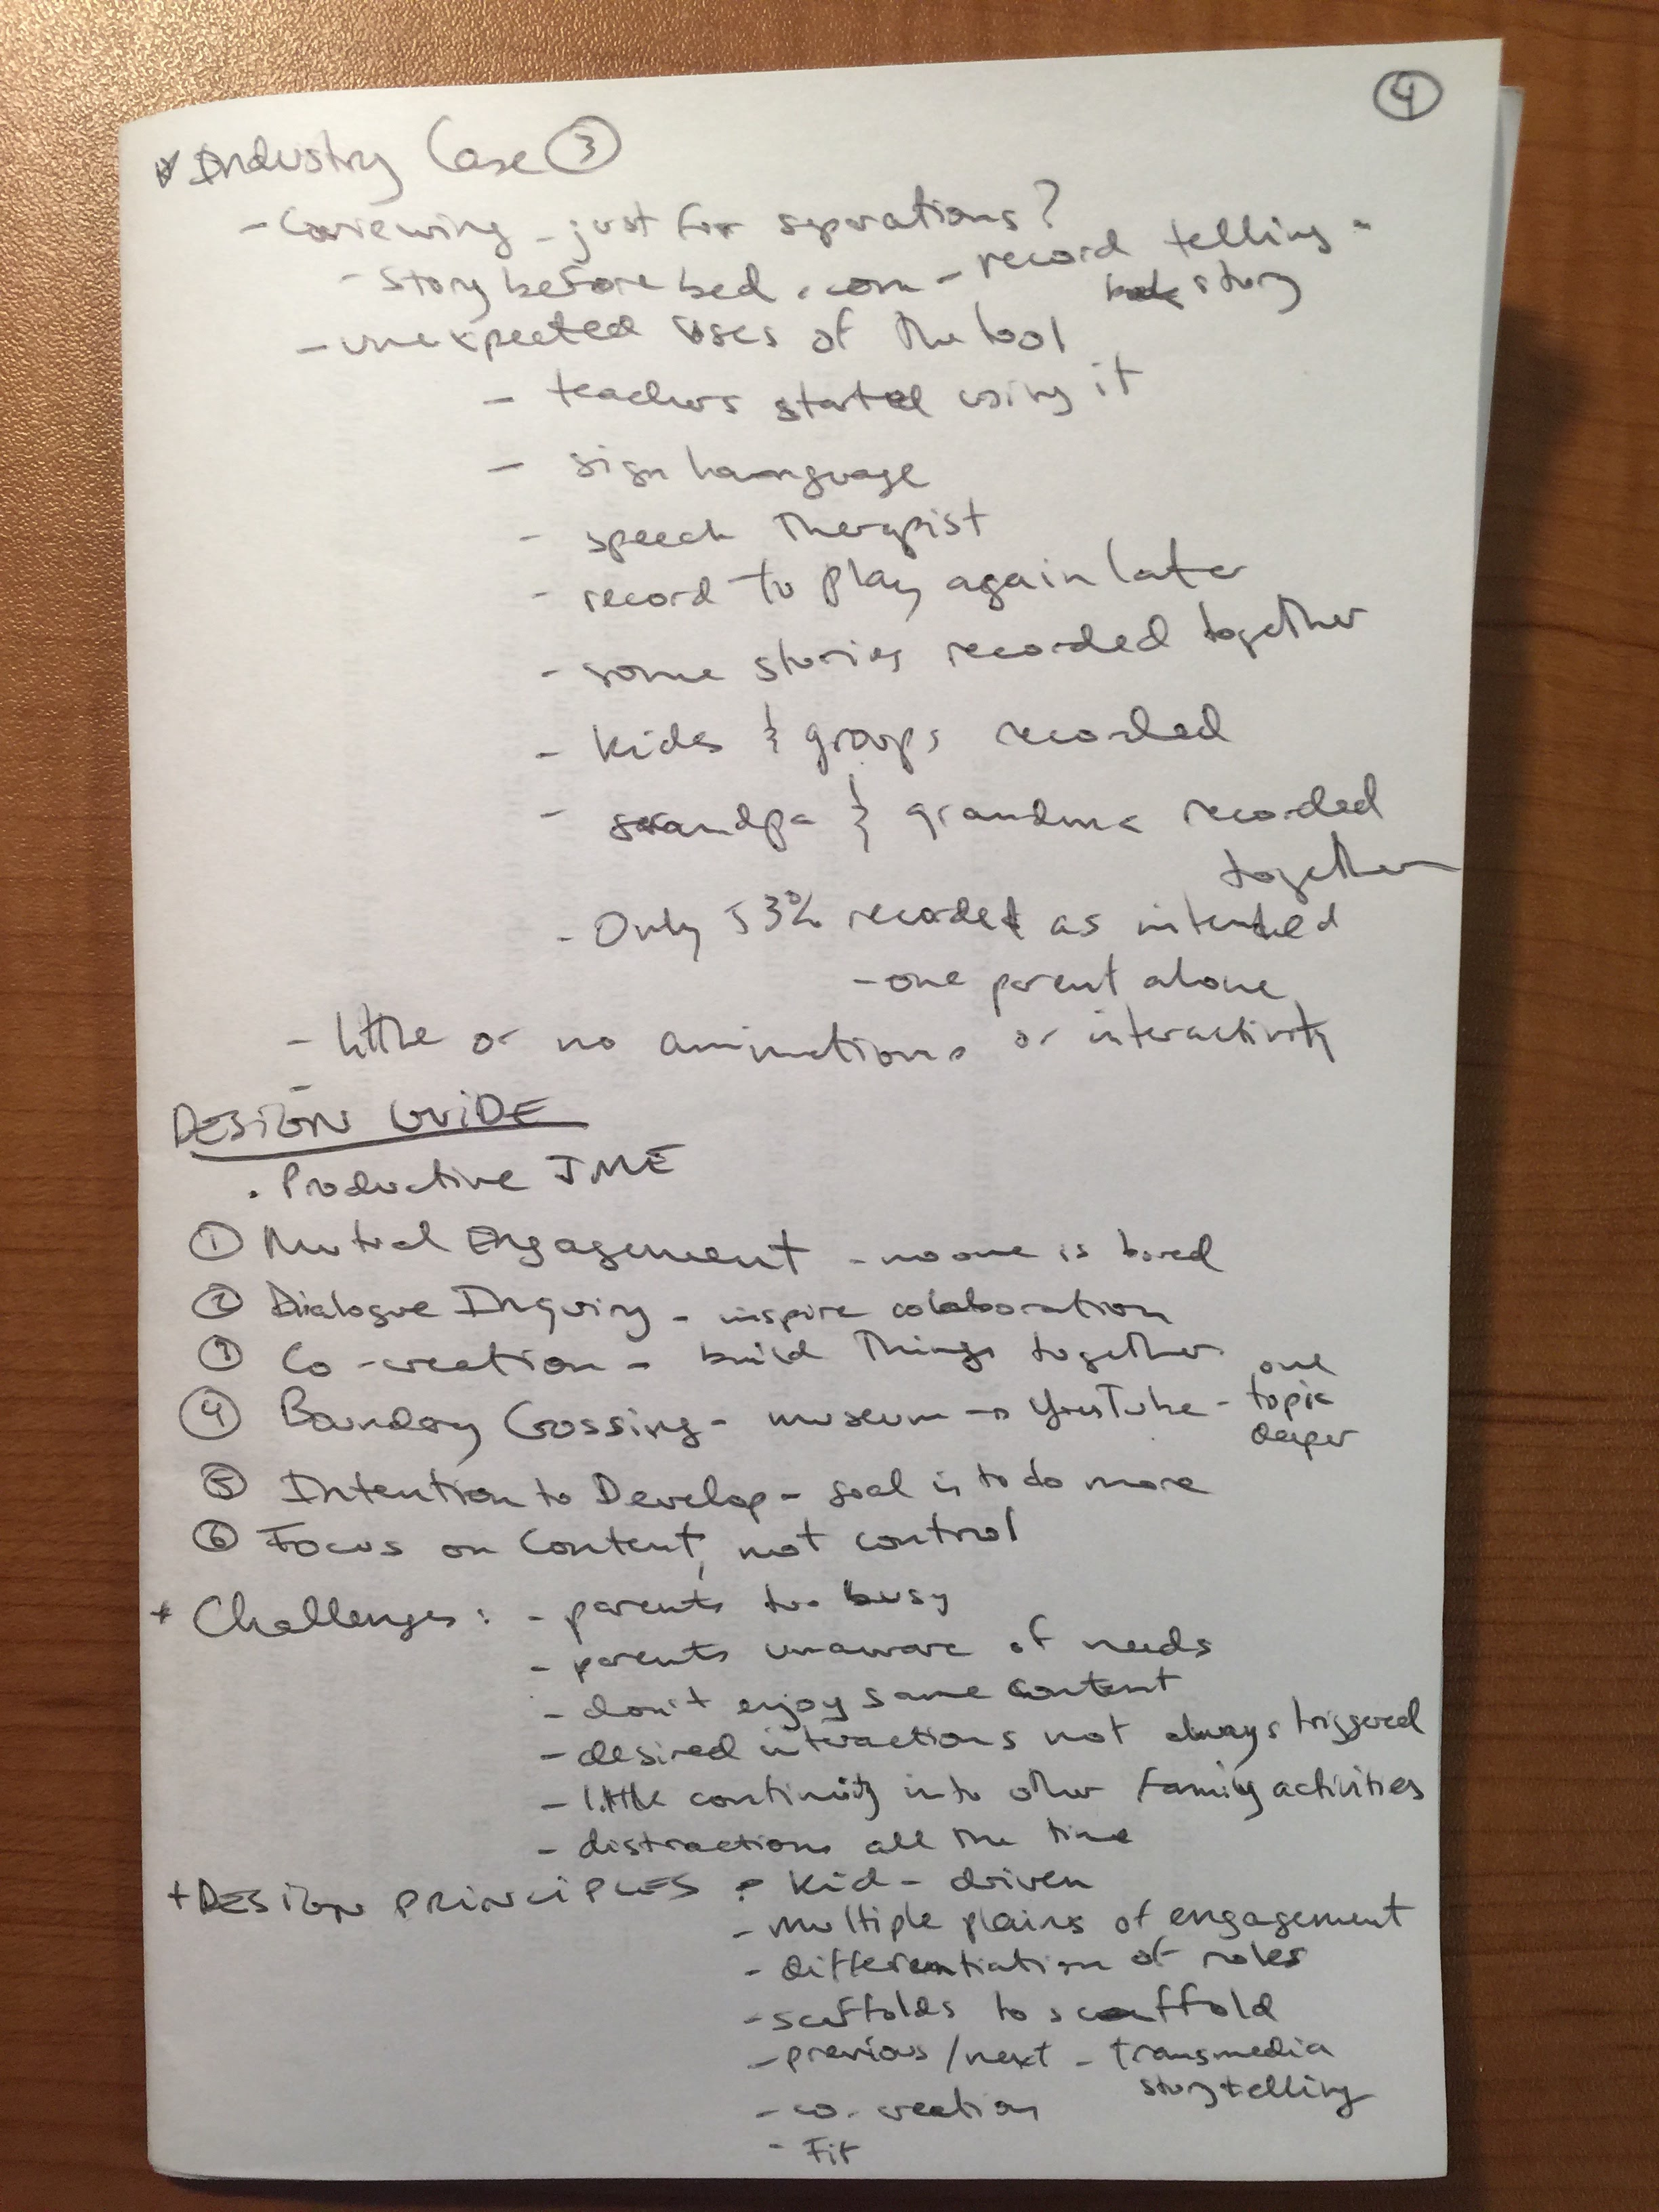 ④
Industry Case ③
- Coviewing - just for seperations?
- story before bed . com - record telling a
story
- unexpected uses of the tool
- teachers started using it
- sign language
- speech therapist
- record to play again later
- some stories recorded together
- kids & groups recorded
- grandpa & grandma recorded
together
- Only 53% recorded as intended
- one parent alone
- little or no animations or interactivity
-
DESIGN GUIDE
. Productive JME
① Mutual Engagement - no one is bored
② Dialogue Inquiry - inspire colaboration
③ Co-creation - build things together
④ Boundary Crossing - museum → YouTube - one
topic
deeper
⑤ Intention to Develop - goal is to do more
⑥ Focus on Content, not control
+ Challenges: - parents too busy
- parents unaware of needs
- don't enjoy same content
- desired interactions not always triggered
- little continuity into other family activities
- distractions all the time
+ DESIGN PRINCIPLES : kid-driven
- multiple plains of engagement
- differentiation of roles
- scaffolds to scaffold
- previous/next - transmedia
storytelling
- co-creation
- Fit